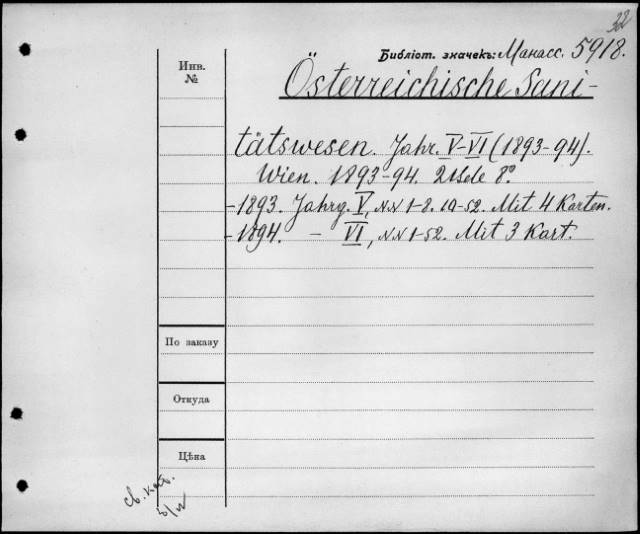 32
Библіот. значекъ: Манасс. 5918.
Инв.
№
Österreichische Sani-
tätswesen. Jahr. V-VI (1893-94).
Wien. 1893-94. 2 Bde 8°
-1893. Jahrg. V, NN 1-8. 10-52. Mit 4 Karten.
-1894. - VI, NN 1-52. Mit 3 Kart.
По заказу
Откуда
Цѣна
св. кат.